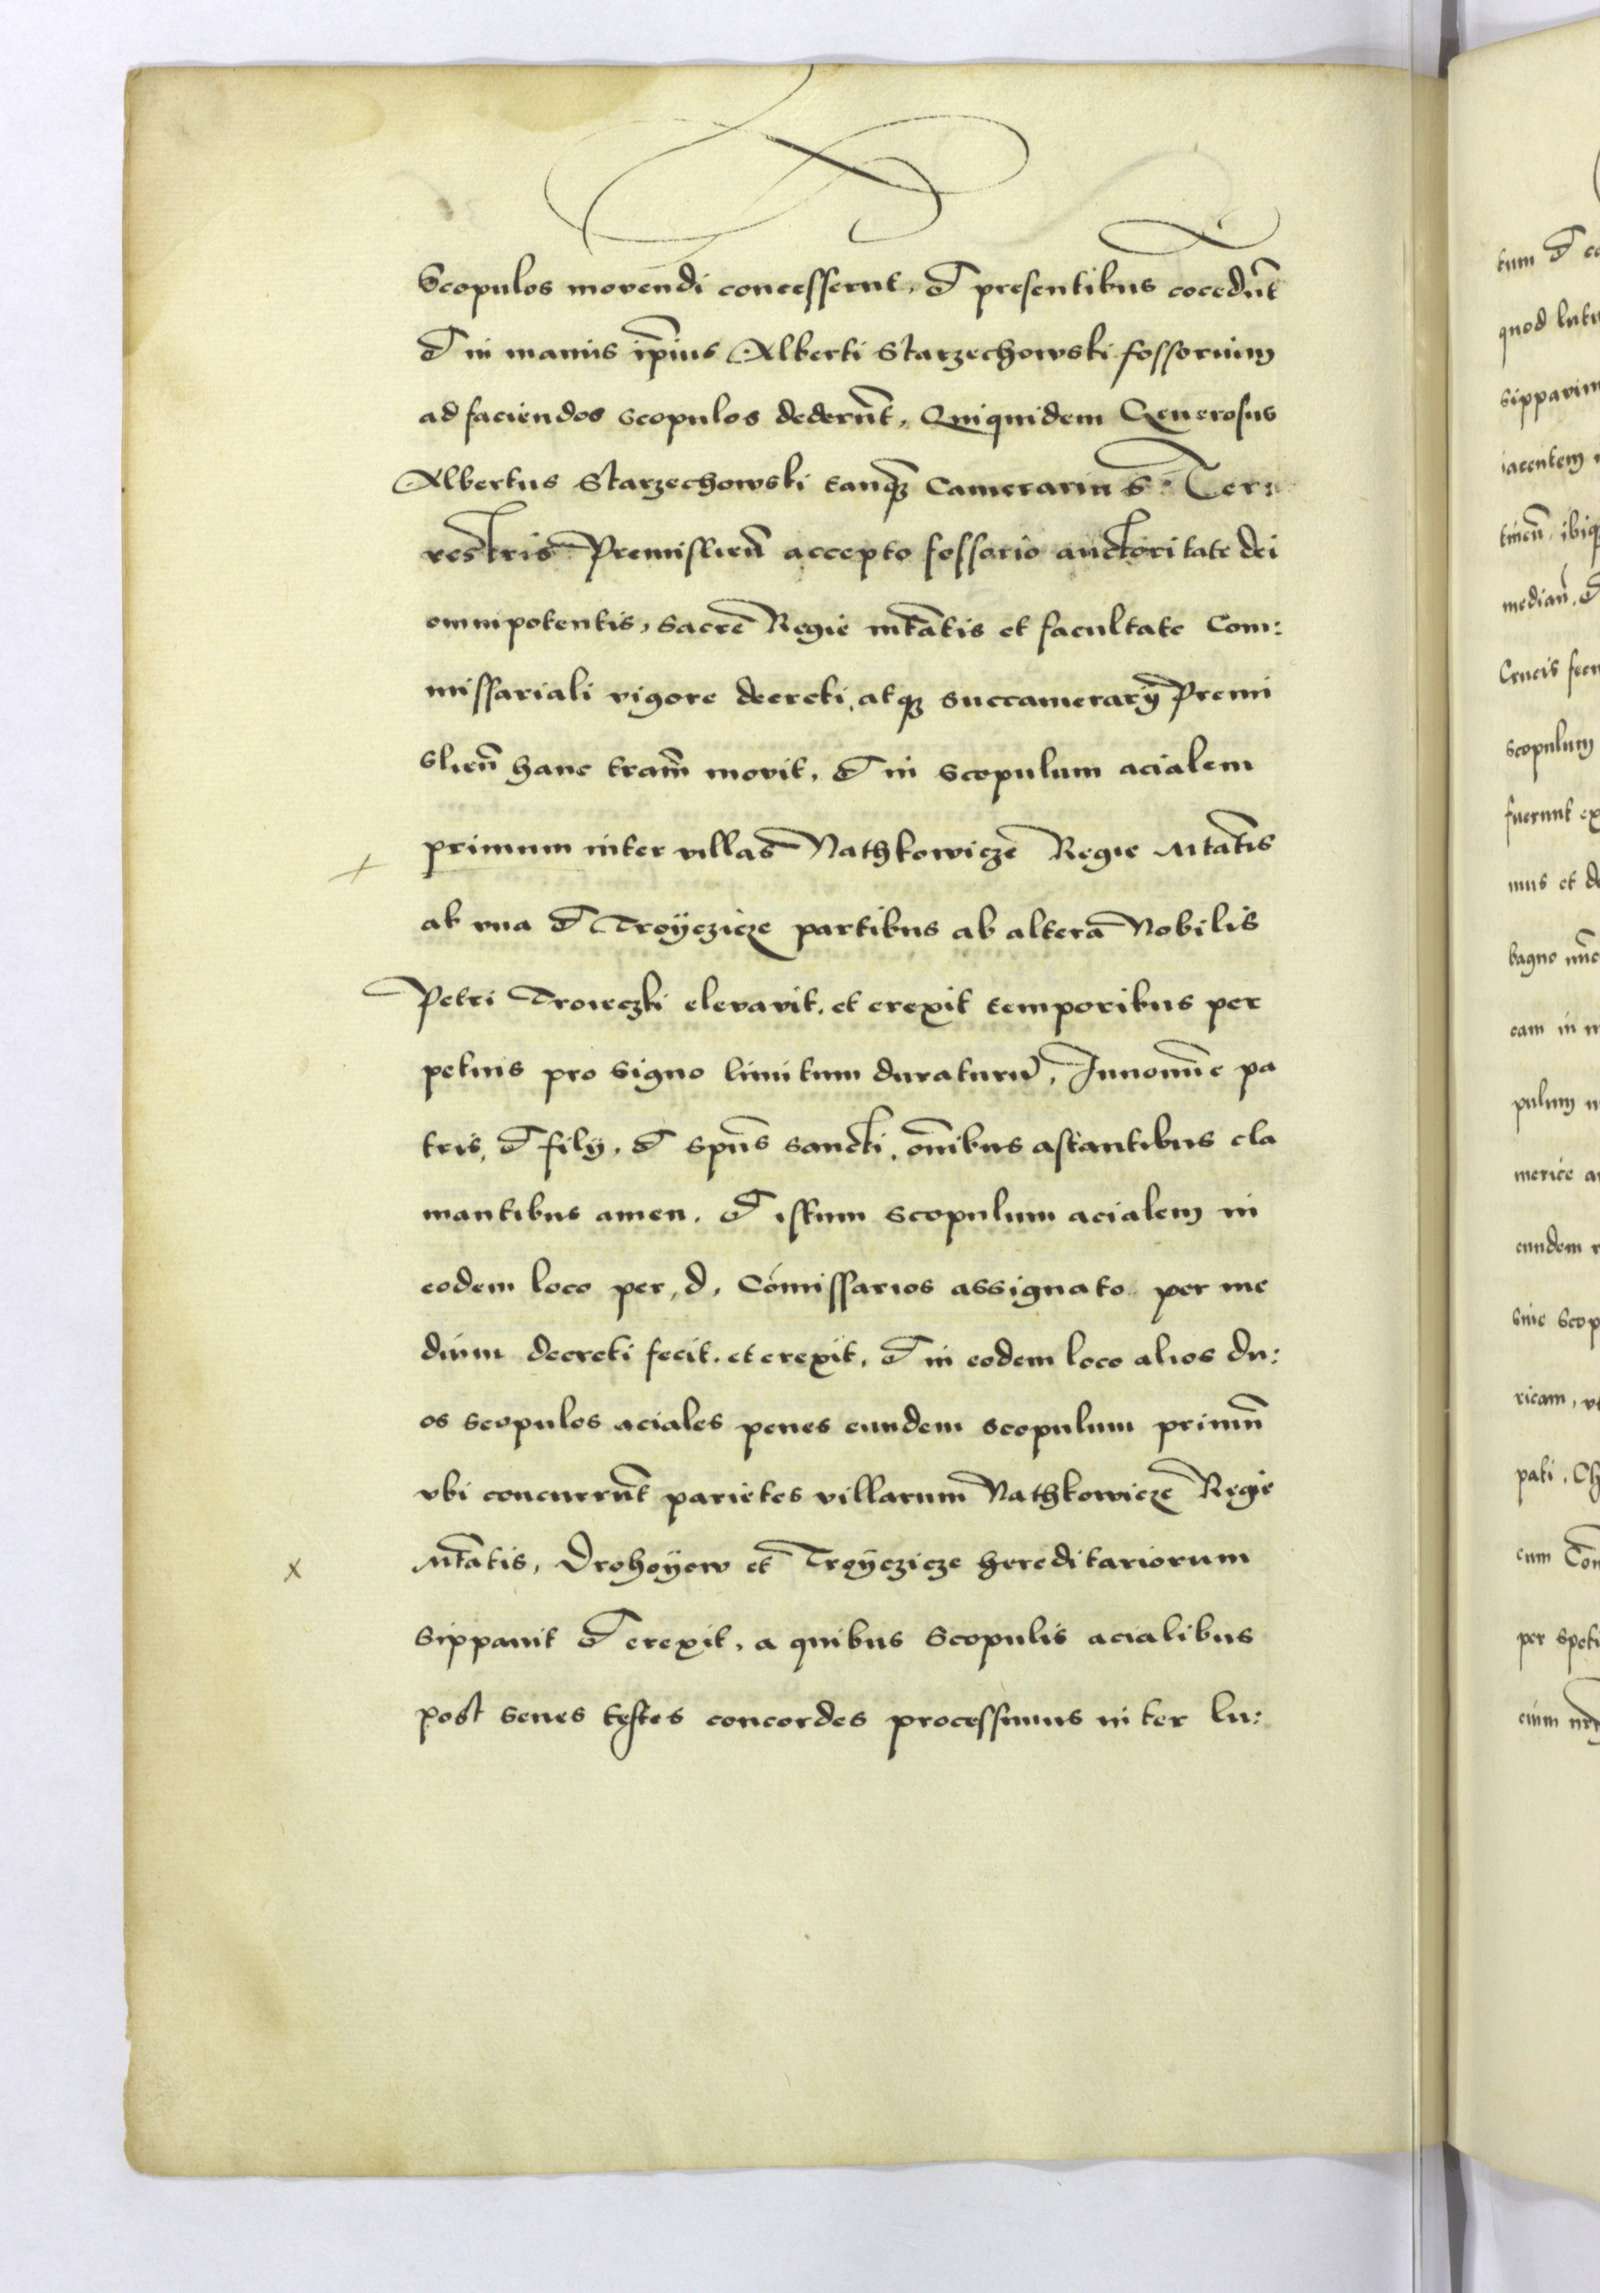 Scopulos movendi concesserut, et presentibus cocedūt
et in manus ip̄ius Alberti Starzechowski fossorium
ad faciendos scopulos dederūt, Quiquidem Generosus
Albertus Starzechowski tanq̃ Camerarius Ter:
restris Premislień accepto fossorio auctoritate dei
omnipotentis, sacre Regie mtātis et facultate Com:
missariali vigore decreti, atq̃ succamerarÿ Premi
slień hanc trām movit, et in scopulum acialem
primum inter villas Nathkowicze Regie Mtātis
ab vna et Troÿczicze partibus ab altera Nobilis
Petri Troieczki elevavit, et erexit temporibus per
petuis pro signo limitum duraturū, Innomīe pa
tris, et filÿ, et spūs sancti, om̄ibus astantibus cla
mantibus amen, et istum scopulum acialem in
eodem loco per, d, Comissarios assignato per me
dium decreti fecit, et erexit, et in eodem loco alios du:
os scopulos aciales penes eundem scopulum primū
vbi concurrūt parietes villarum Nathkowicze Regie
Mtātis, Drohoÿow et Troÿczicze hereditariorum
sippauit et erexit, a quibus Scopulis acialibus
post senes testes concordes processimus inter lu:
tum et
quod
iacentem
tineń, ibiq̃
mediań, et
Crucis
scopulum
fuerunt
mus et
bagno
eam in
pulum
merice
eundem
sine
ricam,
pati,
cum
per